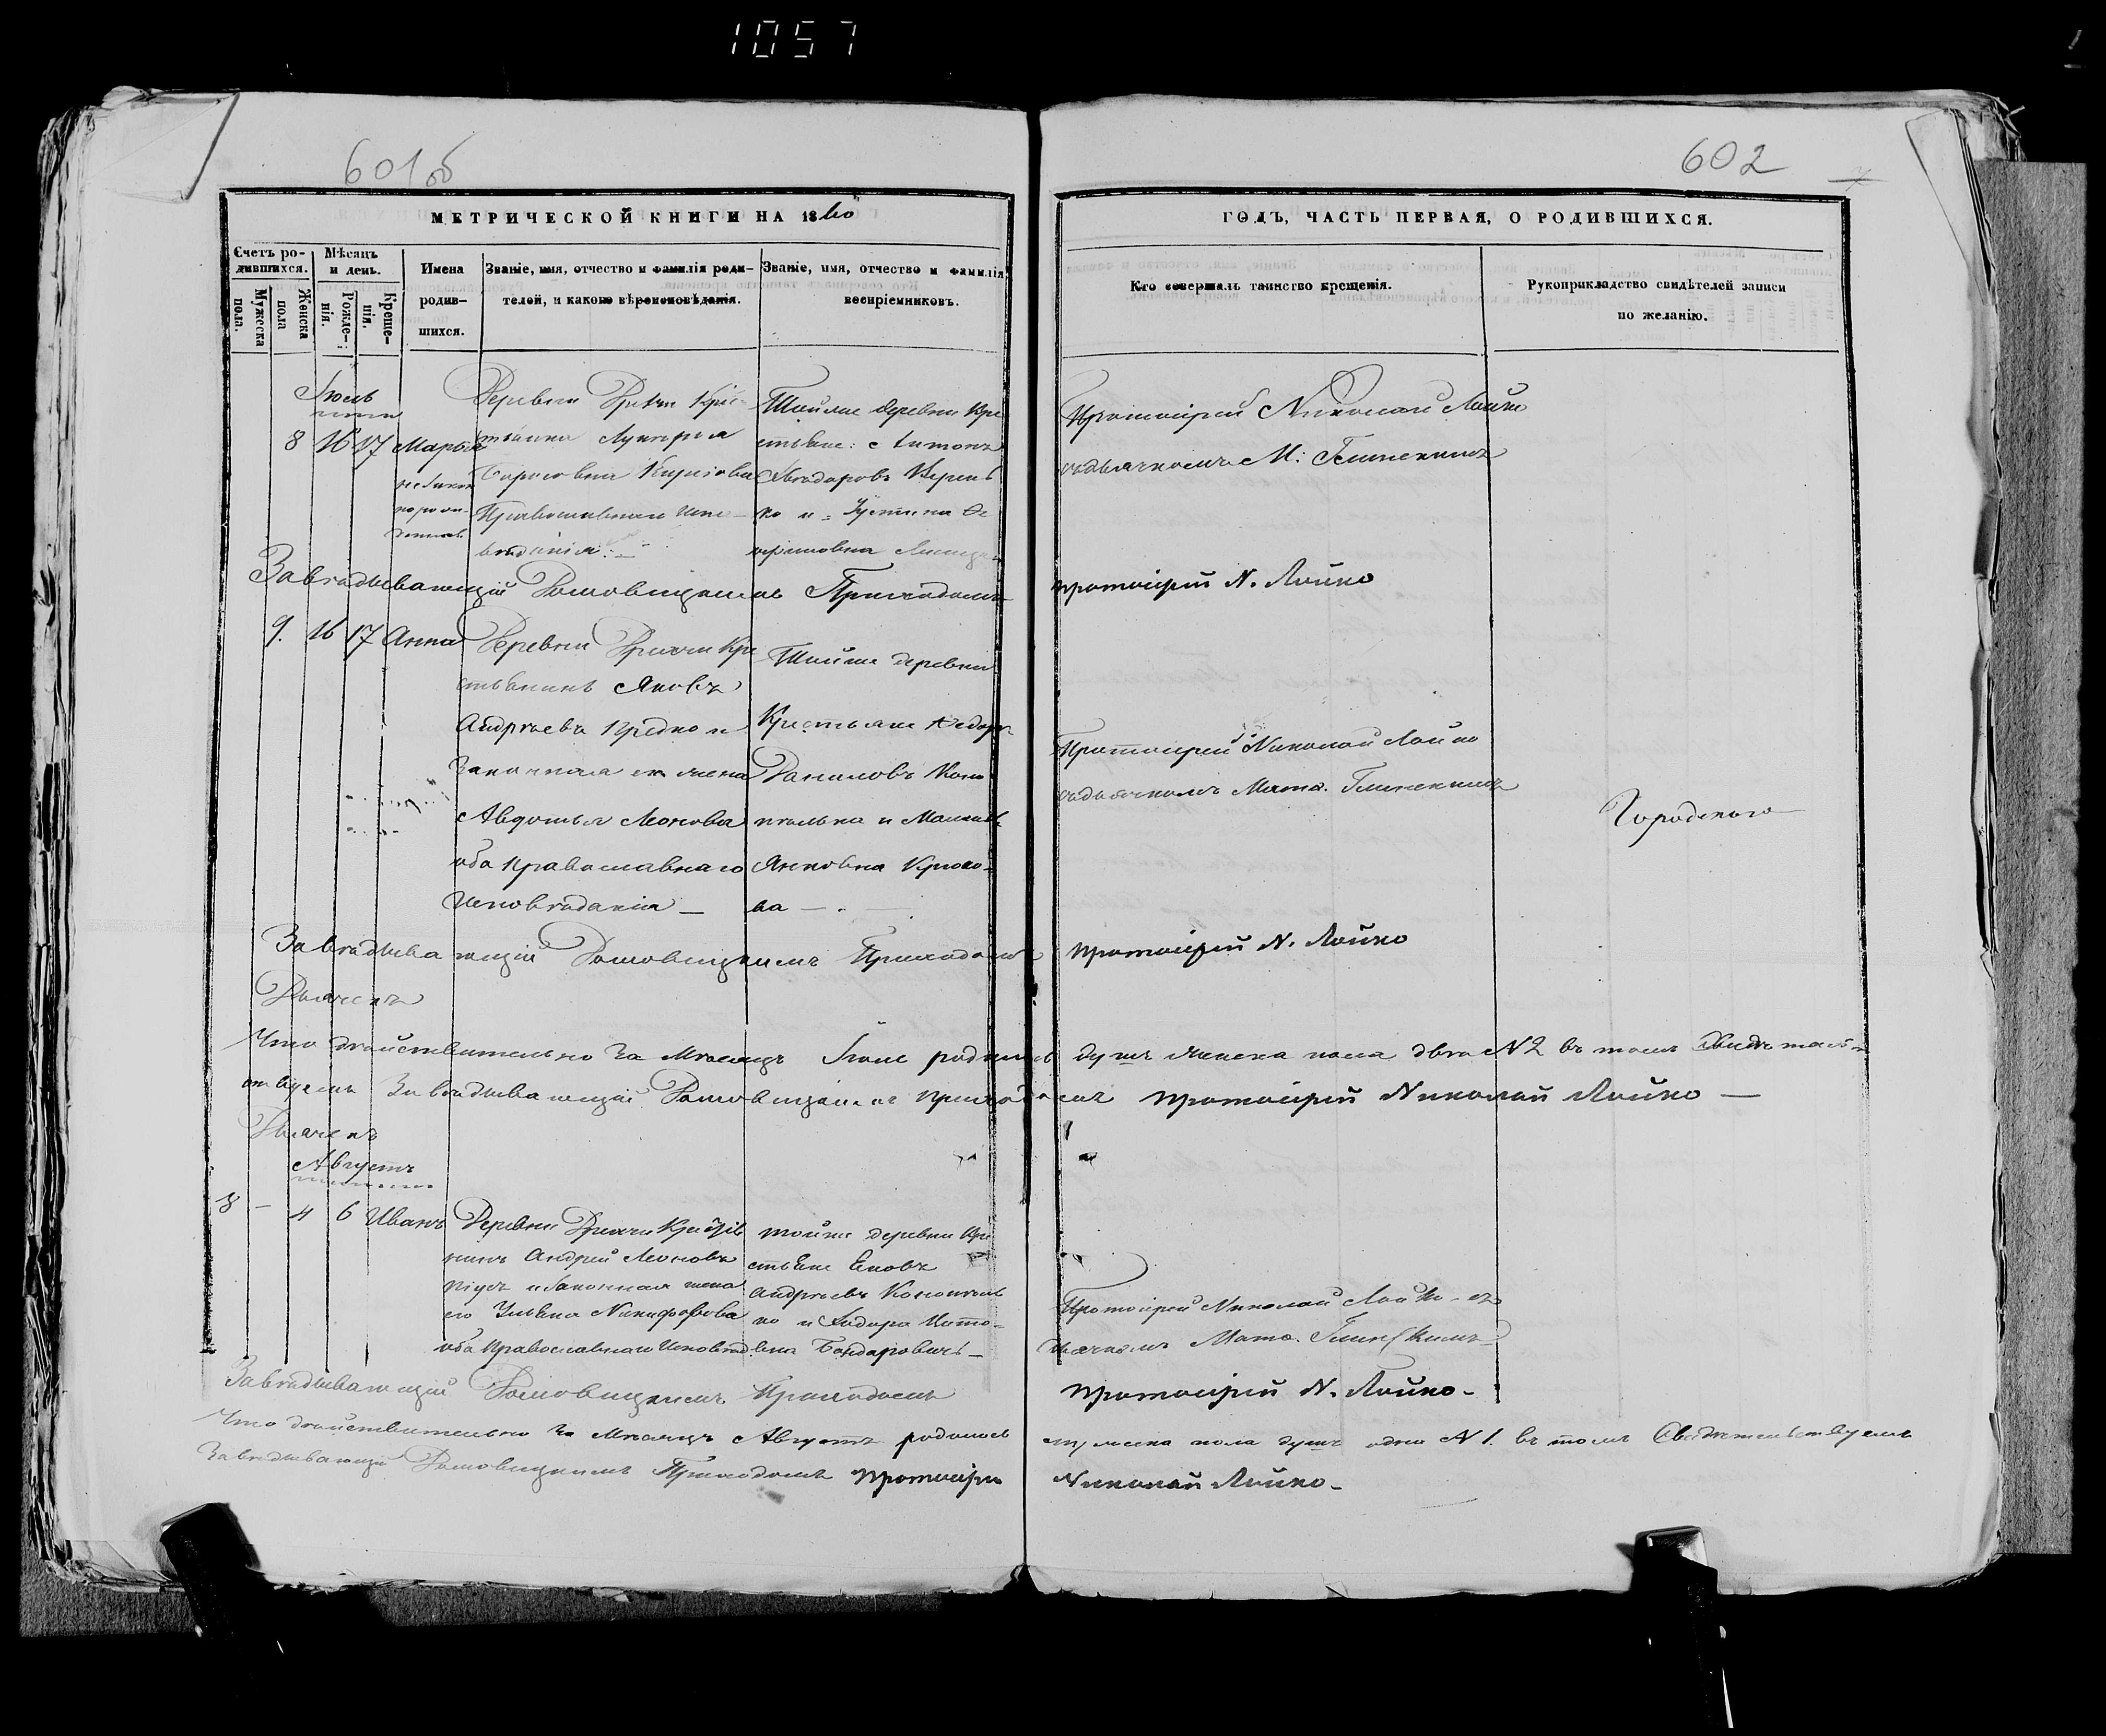 1057
601 об
602
МЕТРИЧЕСКОЙ КНИГИ НА 1860
ГОДЪ, ЧАСТЬ ПЕРВАЯ, О РОДИВШИХСЯ.
Счетъ ро-
дившихся.
Мужеска
пола.
Женска
пола
Мѣсяцъ
и день.
Рожде-
нія.
Креще-
нія.
Имена
родив-
шихся.
Званіе, имя, отчество и фамилія роди-
телей, и какого вѣроисповѣданія.
Званіе, имя, отчество и фамилія
воспріемниковъ.
Кто совершалъ таинство крещенія.
Рукоприкладство свидѣтелей записи
по желанію.
Іюль
8 16 17 Марья
незакон
норож-
Деревни Кре
стьянка Лукерья
Борисовна
Православнаго испо-
вѣданія. —
Тойже деревни Кре
стьяне: Антонъ
ко и Устинна
Протоіерей Николай Лойко
съ дьячкомъ М: Глинскимъ
Завѣдывающій Приходомъ протоіерей Н. Лойко
9. 16 17 Анна
Деревни Кре
стьянинъ Яковъ
Андреевъ и
Законная его жена
Авдотья Леонова
оба православнаго
Исповѣданія —
Тойже деревни
Крестьяне Ѳедоръ
Даниловъ Коно
пелька и
Янковна
ва — . —
Протоіерей Николай Лойко
съ дьячкомъ Матѳ. Глинскимъ
Городского
Завѣдывающій Приходомъ протоіерей Н. Лойко
Дьячекъ
Что дѣйствительно за Мѣсяцъ Іюль родилось душъ женска пола двѣ N 2 въ томъ Свидѣтель-
ствуемъ Завѣдывающій приходомъ протоіерей Николай Лойко —
Дьячекъ
Августъ
8 — 4 6 Иванъ
Деревни Крестья
нинъ Андрей Леоновъ
и Законная жена
его Ульяна Никифорова
оба Православнаго Исповѣд.
тойже деревни Кре
стьяне Еновъ
Андреевъ Конопель
ко и Ѳадора
вна Бондаровичь —
Протоіерей Николай Лойко съ
дьячкомъ Матѳ. Глинскимъ
Завѣдывающій Приходомъ протоіерей Н. Лойко.
Что дѣйствительно за Мѣсяцъ Августъ родилось мужеска пола душъ одна N 1. въ томъ Свидѣтельствуемъ
Завѣдывающій Приходомъ протоіерей Николай Лойко.